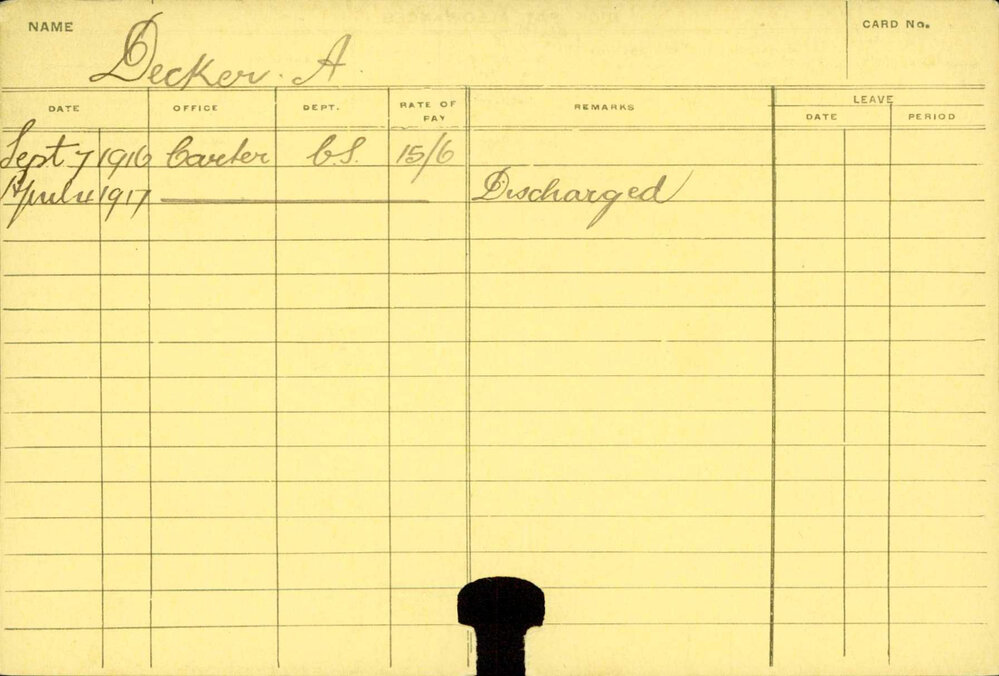 NAME
Decker. A
CARD No.
DATE OFFICE DEPT. RATE OF PAY REMARKS LEAVE
DATE PERIOD
Sept 7 1916 Carter CS. 15/6
April 4 1917 Discharged